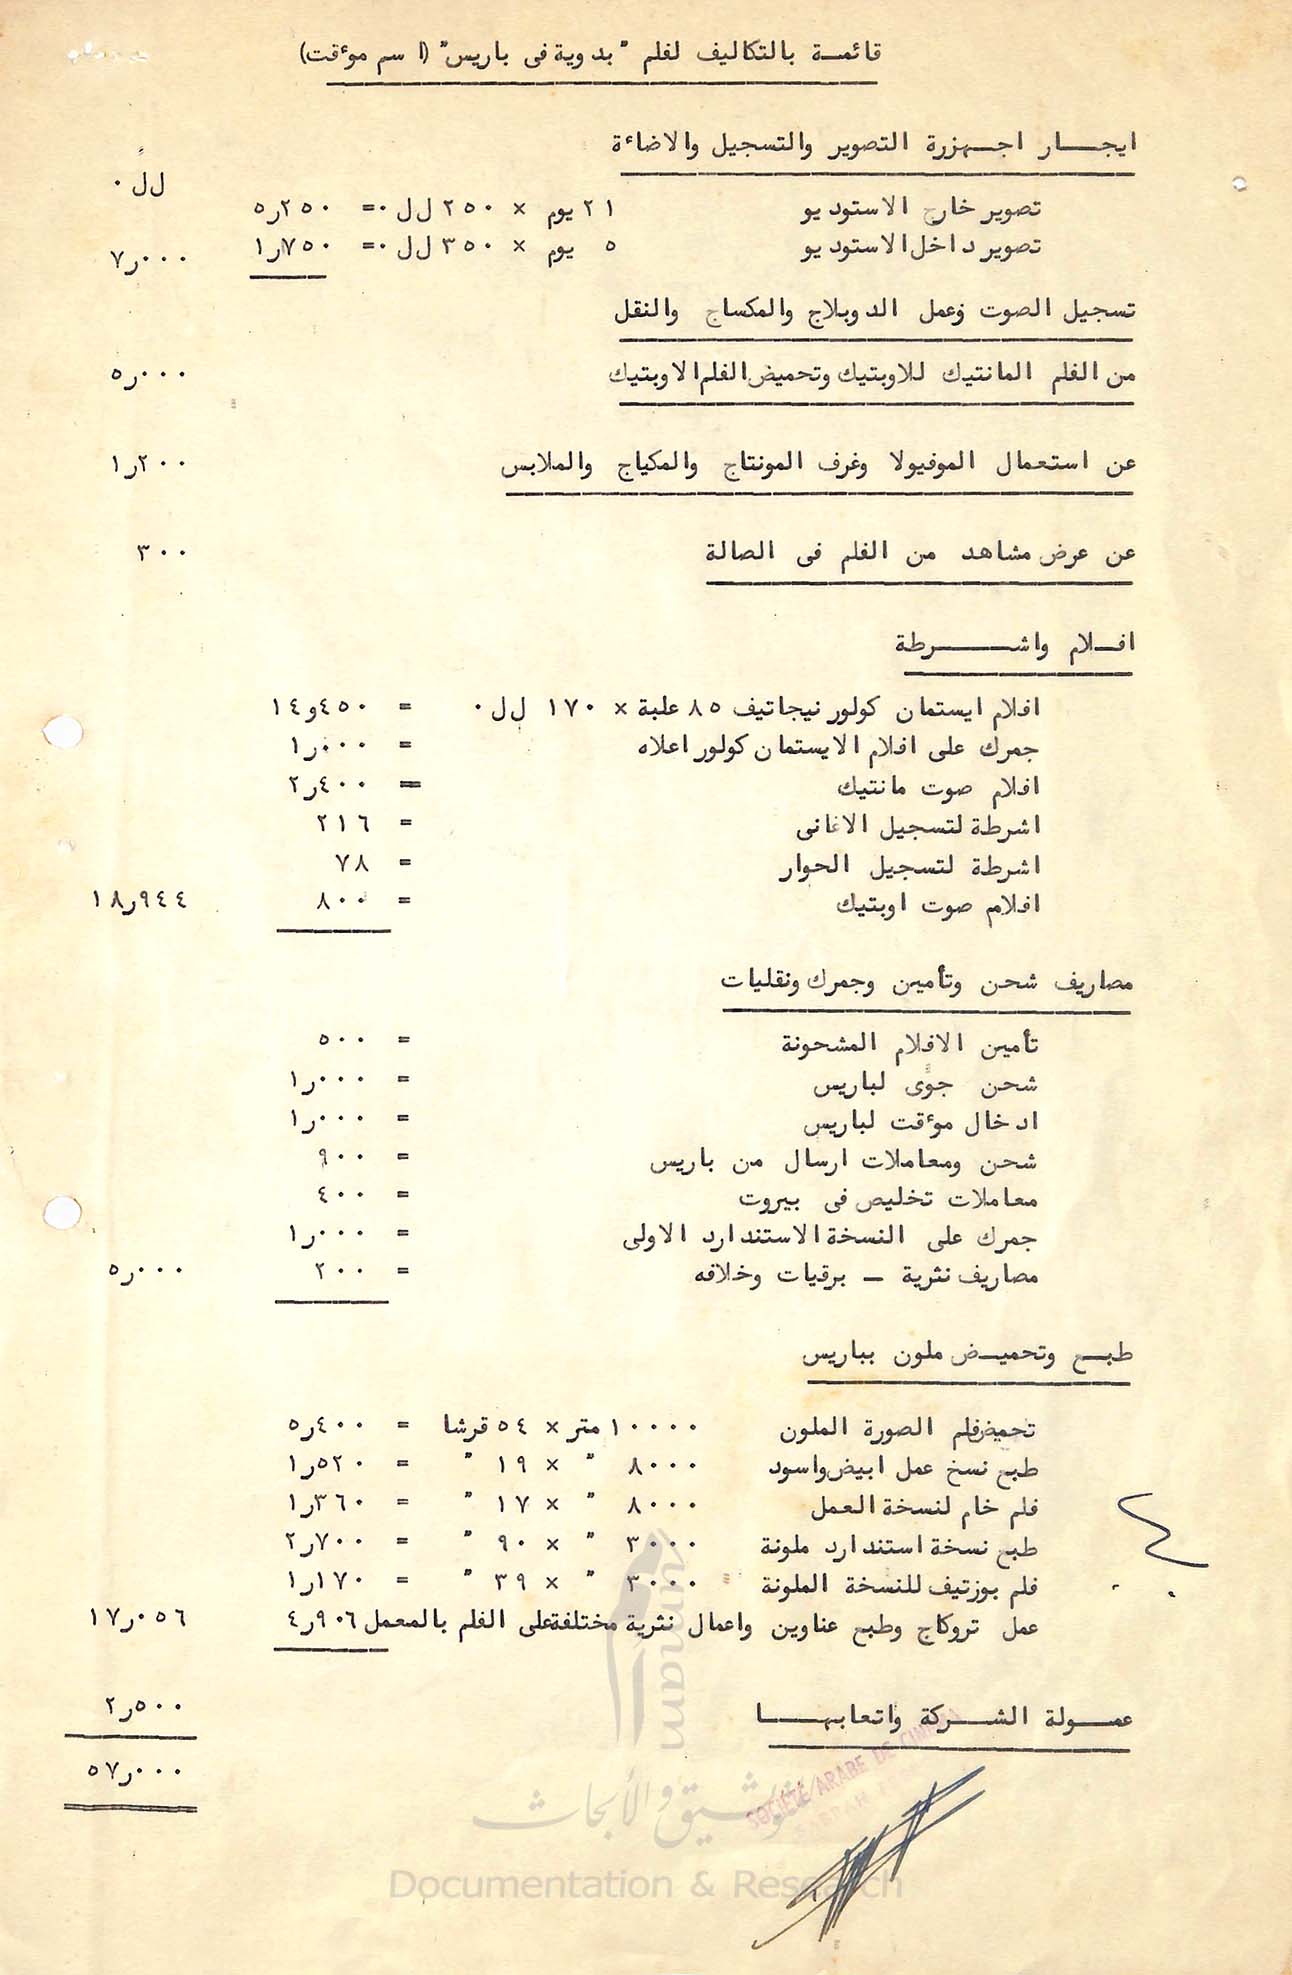 قائمة بالتكاليف لفلم "بدوية فى باريس" (اسم موءقت)
ايجار اجهزرة التصوير والتسجيل والاضاءة
ل ل ٠
تصوير خارج الاستوديو ٢١ يوم × ٢٥٠ ل ل ٠ = ٥ر٢٥٠
تصوير داخل الاستوديو ٥ يوم × ٣٥٠ ل ل ٠ = ١ر٧٥٠ ٧ر٠٠٠
تسجيل الصوت وعمل الدوبلاج والمكساج والنقل
من الفلم المانتيك للاوبتيك وتحميض الفلم الاوبتيك ٥ر٠٠٠
عن استعمال الموفيولا وغرف المونتاج والمكياج والملابس ١ر٢٠٠
عن عرض مشاهد من الفلم فى الصالة ٣٠٠
افلام واشرطة
افلام ايستمان كولور نيجاتيف ٨٥ علبة × ١٧٠ ل ل ٠ = ١٤و٤٥٠
جمرك على افلام الايستمان كولور اعلاه = ١ر٠٠٠
افلام صوت مانتيك = ٢ر٤٠٠
اشرطة لتسجيل الاغانى = ٢١٦
اشرطة لتسجيل الحوار = ٧٨
افلام صوت اوبتيك = ٨٠٠ ١٨ر٩٤٤
مصاريف شحن وتأمين وجمرك ونقليات
تأمين الافلام المشحونة = ٥٠٠
شحن جوى لباريس = ١ر٠٠٠
ادخال موءقت لباريس = ١ر٠٠٠
شحن ومعاملات ارسال من باريس = ٩٠٠
معاملات تخليص فى بيروت = ٤٠٠
جمرك على النسخة الاستندارد الاولى = ١ر٠٠٠
مصاريف نثرية – برقيات وخلافه = ٢٠٠ ٥ر٠٠٠
طبع وتحميض ملون بباريس
تحميض فلم الصورة الملون ١٠٠٠٠ متر × ٥٤ قرشا = ٥ر٤٠٠
طبع نسخ عمل ابيض واسود ٨٠٠٠ " × ١٩ " = ١ر٥٢٠
فلم خام لنسخة العمل ٨٠٠٠ " × ١٧ " = ١ر٣٦٠
طبع نسخة استندارد ملونة ٣٠٠٠ " × ٩٠ " = ٢ر٧٠٠
فلم بوزتيف للنسخة الملونة ٣٠٠٠ " × ٣٩ " = ١ر١٧٠
عمل تروكاج وطبع عناوين واعمال نثرية مختلفة على الفلم بالمعمل ٤ر٩٠٦ ١٧ر٠٥٦
عمولة الشركة واتعابها ٢ر٥٠٠
٥٧ر٠٠٠
SOCIETE ARABE DE CINEMA
umam
للتوثيق والأبحاث
Documentation & Research